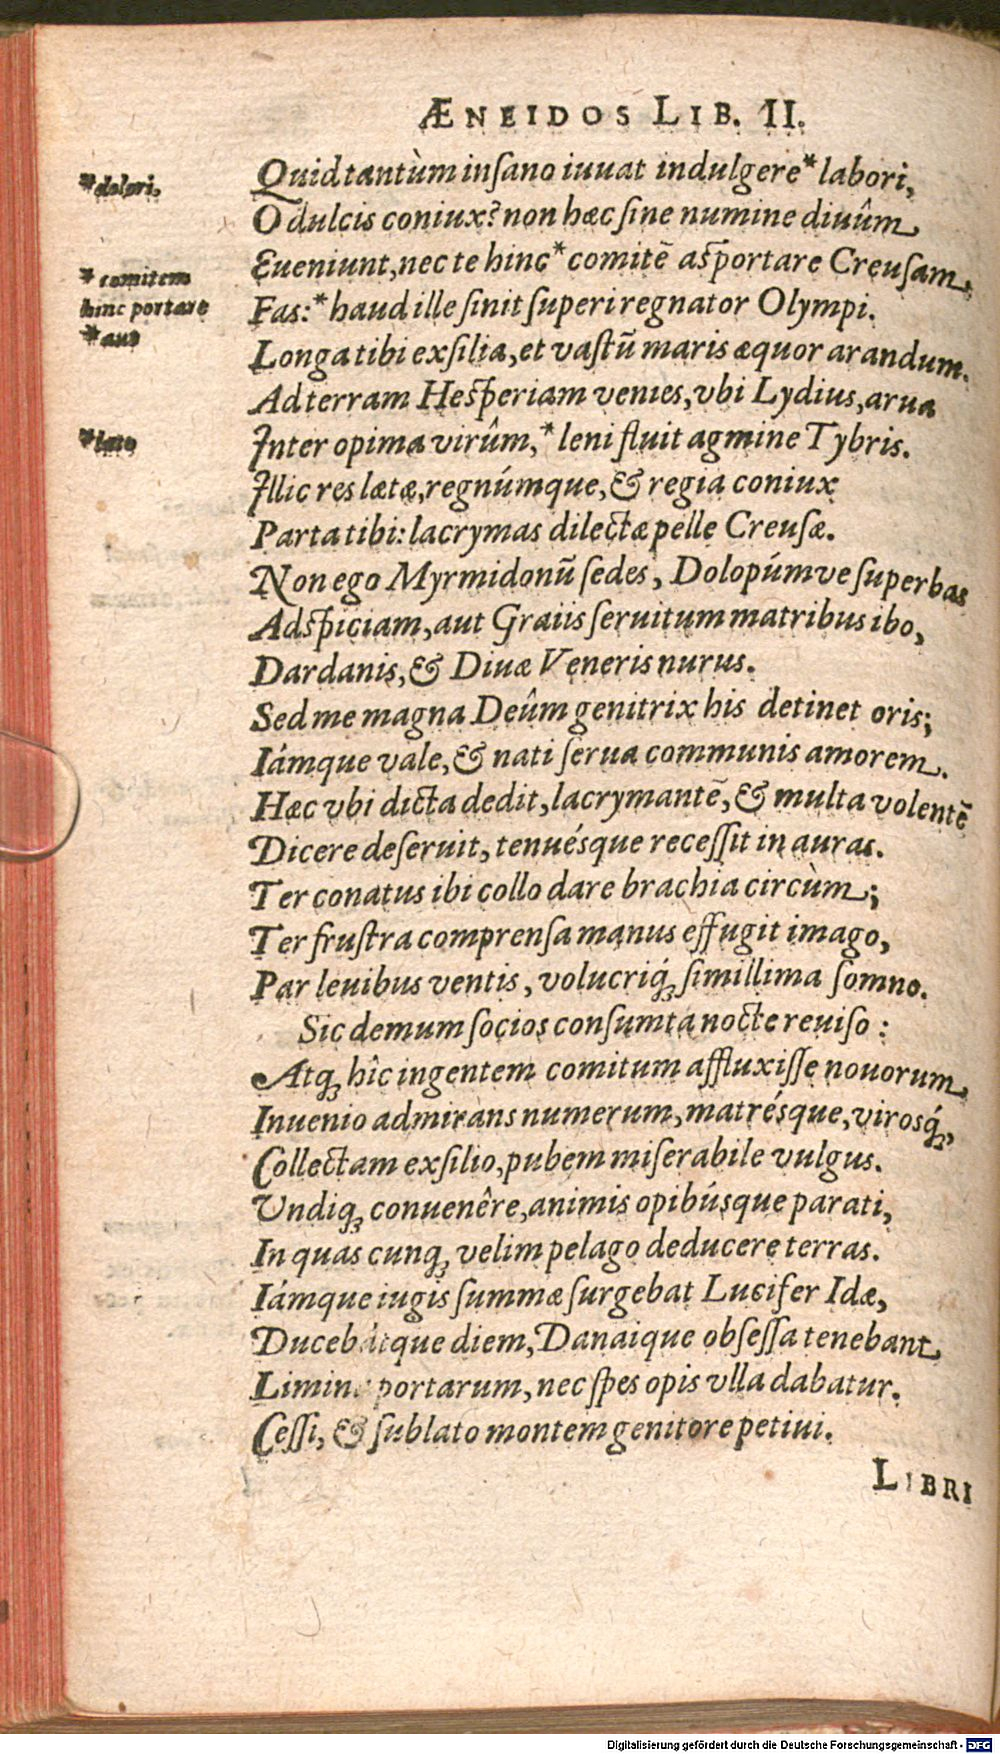 ÆNEIDOS LIB. II.
Quid tantùm inſano iuuat indulgere* labori,
*dolori,
O dulcis coniux? non hæc ſine numine diuûm
Eueniunt, nec te hinc* comitē aſportare Creuſam,
*comitem
hinc portare
Fas:* haud ille ſinit ſuperi regnator Olympi.
*aut
Longa tibi exſilia, et vaſtũ maris æquor arandum.
Ad terram Heſperiam venies, vbi Lydius, arua
Inter opima virûm,* leni fluit agmine Tybris.
*læto
Illic res lætæ, regnúmque, & regia coniux
Parta tibi: lacrymas dilectæ pelle Creuſæ.
Non ego Myrmidonũ ſedes, Dolopúmve ſuperbas
Adſpiciam, aut Graiis ſeruitum matribus ibo,
Dardanis, & Diuæ Veneris nurus.
Sed me magna Deûm genitrix his detinet oris;
Iámque vale, & nati ſerua communis amorem.
Hæc vbi dicta dedit, lacrymantē, & multa volentē
Dicere deſeruit, tenuésque receſſit in auras.
Ter conatus ibi collo dare brachia circùm;
Ter fruſtra comprenſa manus effugit imago,
Par leuibus ventis, volucriq́; ſimillima ſomno.
Sic demum ſocios conſumta nocte reuiſo:
Atq; hîc ingentem comitum affluxiſſe nouorum
Inuenio admirans numerum, matrésque, virosq́;,
Collectam exſilio, pubem miſerabile vulgus.
Undiq; conuenêre, animis opibúsque parati,
In quas cunq; velim pelago deducere terras.
Iámque iugis ſummæ ſurgebat Lucifer Idæ,
Ducebátque diem, Danaique obſeſſa tenebant
Limina portarum, nec ſpes opis vlla dabatur.
Ceſſi, & ſublato montem genitore petiui.
LIBRI
Digitalisierung gefördert durch die Deutsche Forschungsgemeinschaft - DFG